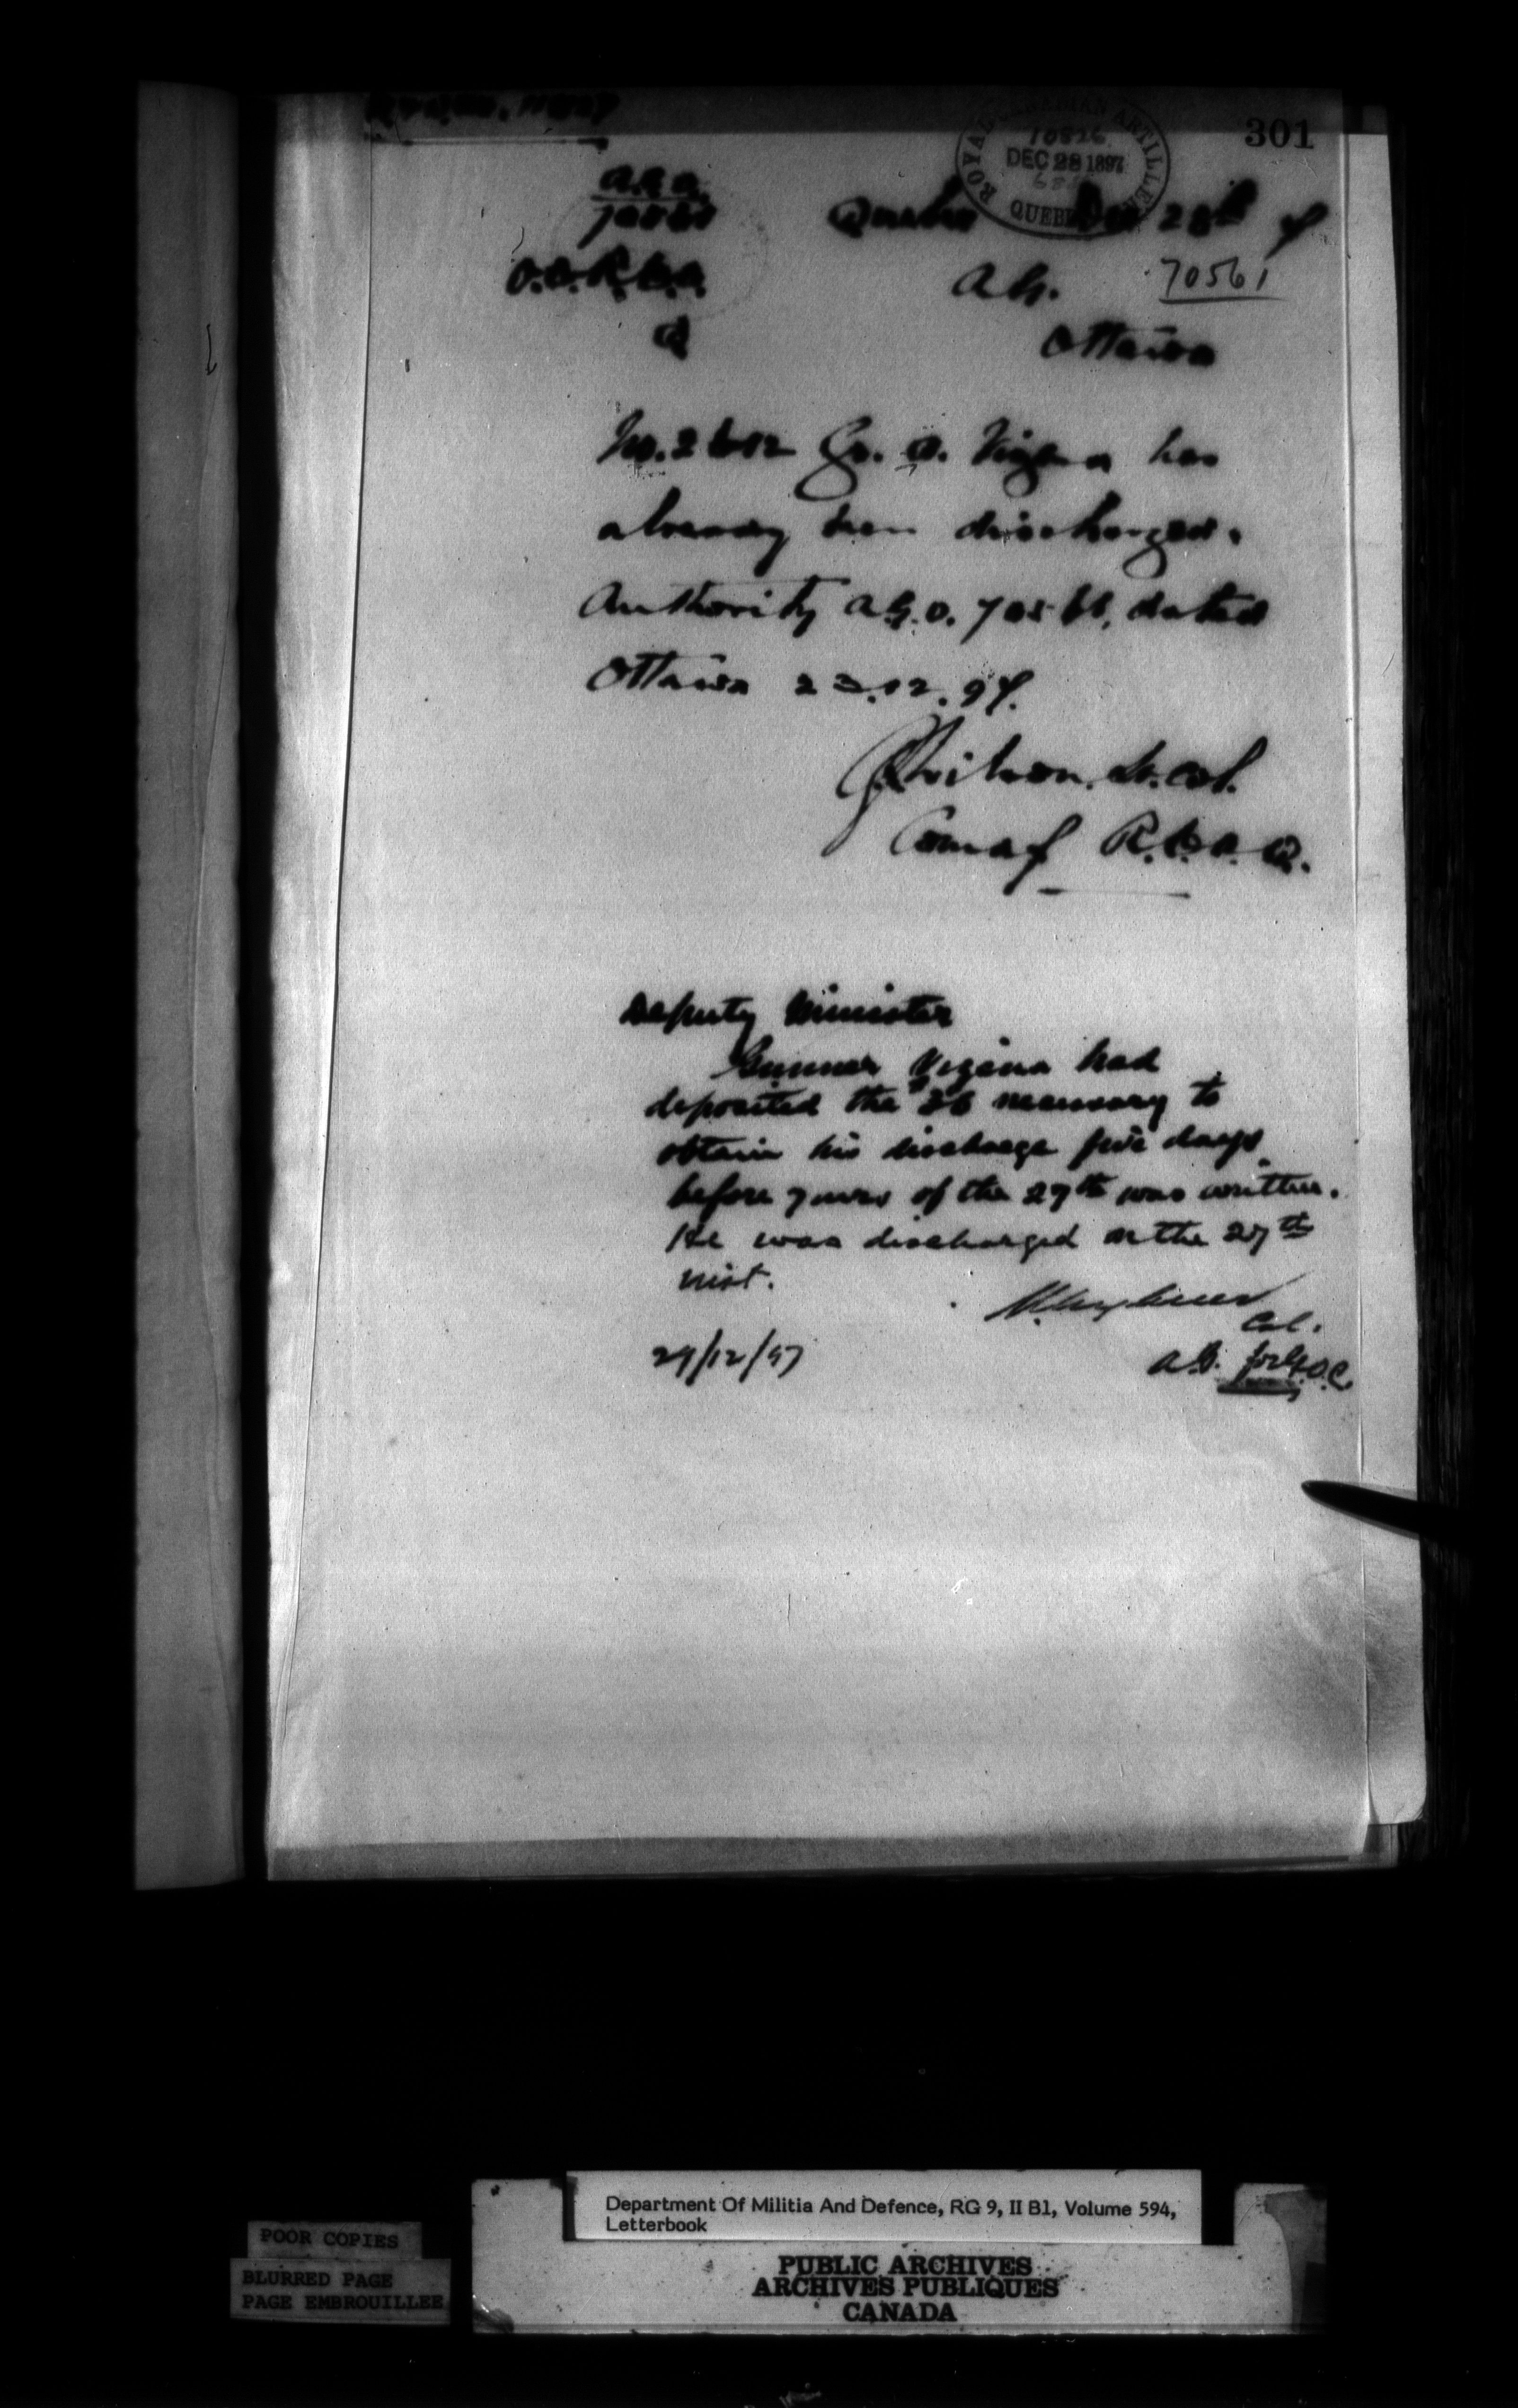 301
ROYAL CANADIAN ARTILLERY
DEC 28 1897
QUEBEC
A.G.O.
Quebec Dec 28th 7
O.C.R.C.A.
A.G. 70561
Q
Ottawa
No. 2612 Gr. O. Vigena has
already been discharged.
Authority A.G.O. 70561, dated
Ottawa 23.12.97.
Wilson. Lt. Col.
Comdg R.C.A. Q.
Deputy Minister
Gunner Vigena had
deposited the $36 necessary to
obtain his discharge five days
before yours of the 27th was written.
He was discharged on the 27th
inst.
Col.
29/12/97
A.G. for G.O.C.
Department Of Militia And Defence, RG 9, II B1, Volume 594,
Letterbook
POOR COPIES
BLURRED PAGE
PAGE EMBROUILLEE
PUBLIC ARCHIVES
ARCHIVES PUBLIQUES
CANADA